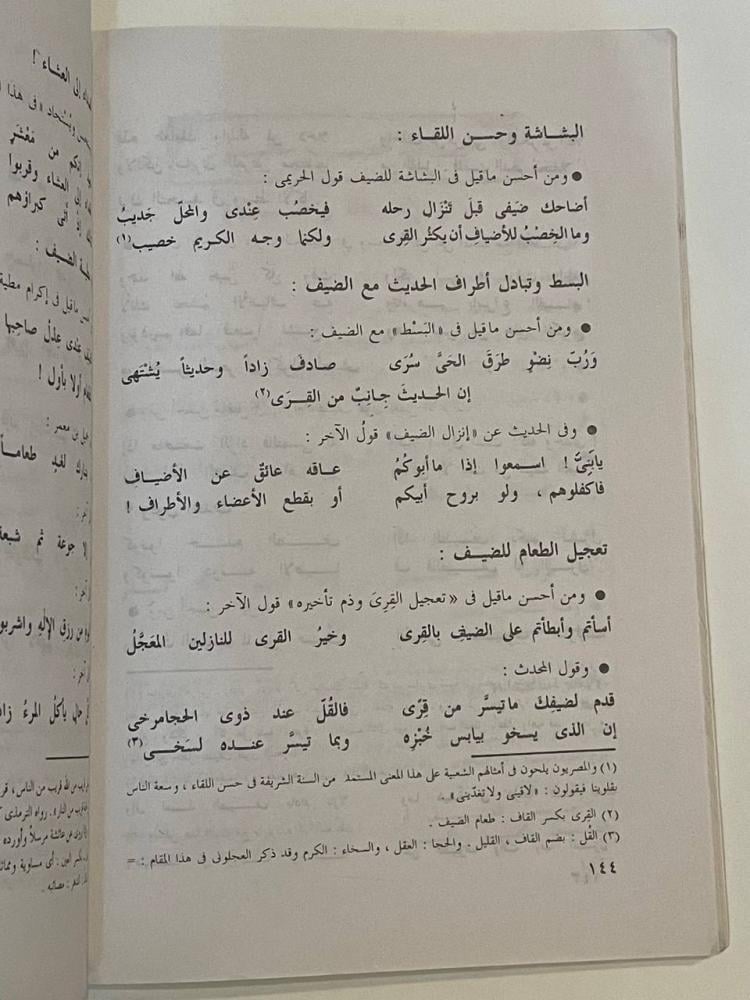 البشاشة وحسن اللقاء :
● ومن أحسن ماقيل فى البشاشة للضيف قول الحريمى :
أضاحك ضيَفى قبلَ تَنْزَالِ رحله فيخصُب عِنْدى والمحلّ جَديبُ
وما الخِصْبُ للأضيافِ أن يكثُر القِرى ولكنما وجه الكريم خصيب(١)
البسط وتبادل أطراف الحديث مع الضيف :
● ومن أحسن ماقيل فى «البَسْط» مع الضيف :
وَرُبّ نِضْوٍ طرَقَ الحَىَّ سُرَى صادفَ زاداً وحديثاً يُشْتَهى
إن الحديثَ جانِبٌ من القِرَى(٢)
● وفى الحديث عن «إنزال الضيف» قولُ الآخر :
يابَنِىَّ ! اسمعوا إذا ما أبوكُمُ عاقه عائقٌ عن الأضياف
فاكفلوهم ، ولو بروح أبيكم أو بقطع الأعضاء والأطراف !
تعجيل الطعام للضيف :
● ومن أحسن ماقيل فى «تعجيل القِرىَ وذم تأخيره» قول الآخر :
أسأتم وأبطأتم على الضيفِ بالقِرى وخيرُ القرى للنازلين المعَجَّلُ
● وقول المحدث :
قدم لضيفِكَ ماتيسَّر من قِرًى فالقُلّ عند ذوى الحجامرخى
إن الذى يسخو بيابس خُبْزِه وبما تيسَّر عنده لسَخى(٣)
(١) والمصريون يلحون فى أمثالهم الشعبية على هذا المعنى المستمد من السنة الشريفة فى حسن اللقاء ، وسعة الناس
بقلوبنا فيقولون : «لاقينى ولا تغدّينى» .
(٢) القِرى بكسر القاف : طعام الضيف .
(٣) القُل : بضم القاف ، القليل . والحجا : العقل ، والسخاء : الكرم وقد ذكر العجلونى فى هذا المقام : =
١٤٤